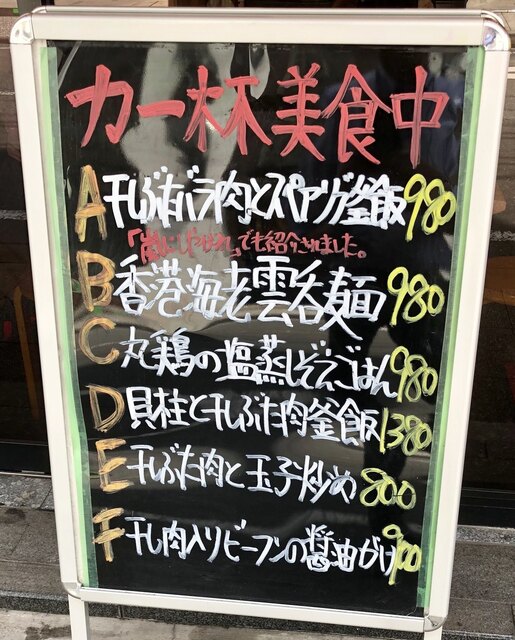 力一杯美食中
A 干しぶたバラ肉とスペアリブ釜飯 980
「嵐にしやがれ」でも紹介されました。
B 香港海老雲呑麺 980
C 丸鶏の塩蒸しぞえごはん 980
D 貝柱と干しぶた肉釜飯 1380
E 干しぶた肉と玉子炒め 800
F 干し肉入りビーフンの醤油がけ 900